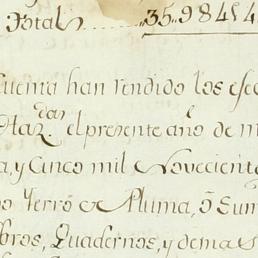 Total ........ 35984 1 4
Cuenta han rendido los efec
das el presente año de m
a, y Cinco mil Novecient
o Yerro de Pluma, ó Sum
bros, Quadernos, y demas